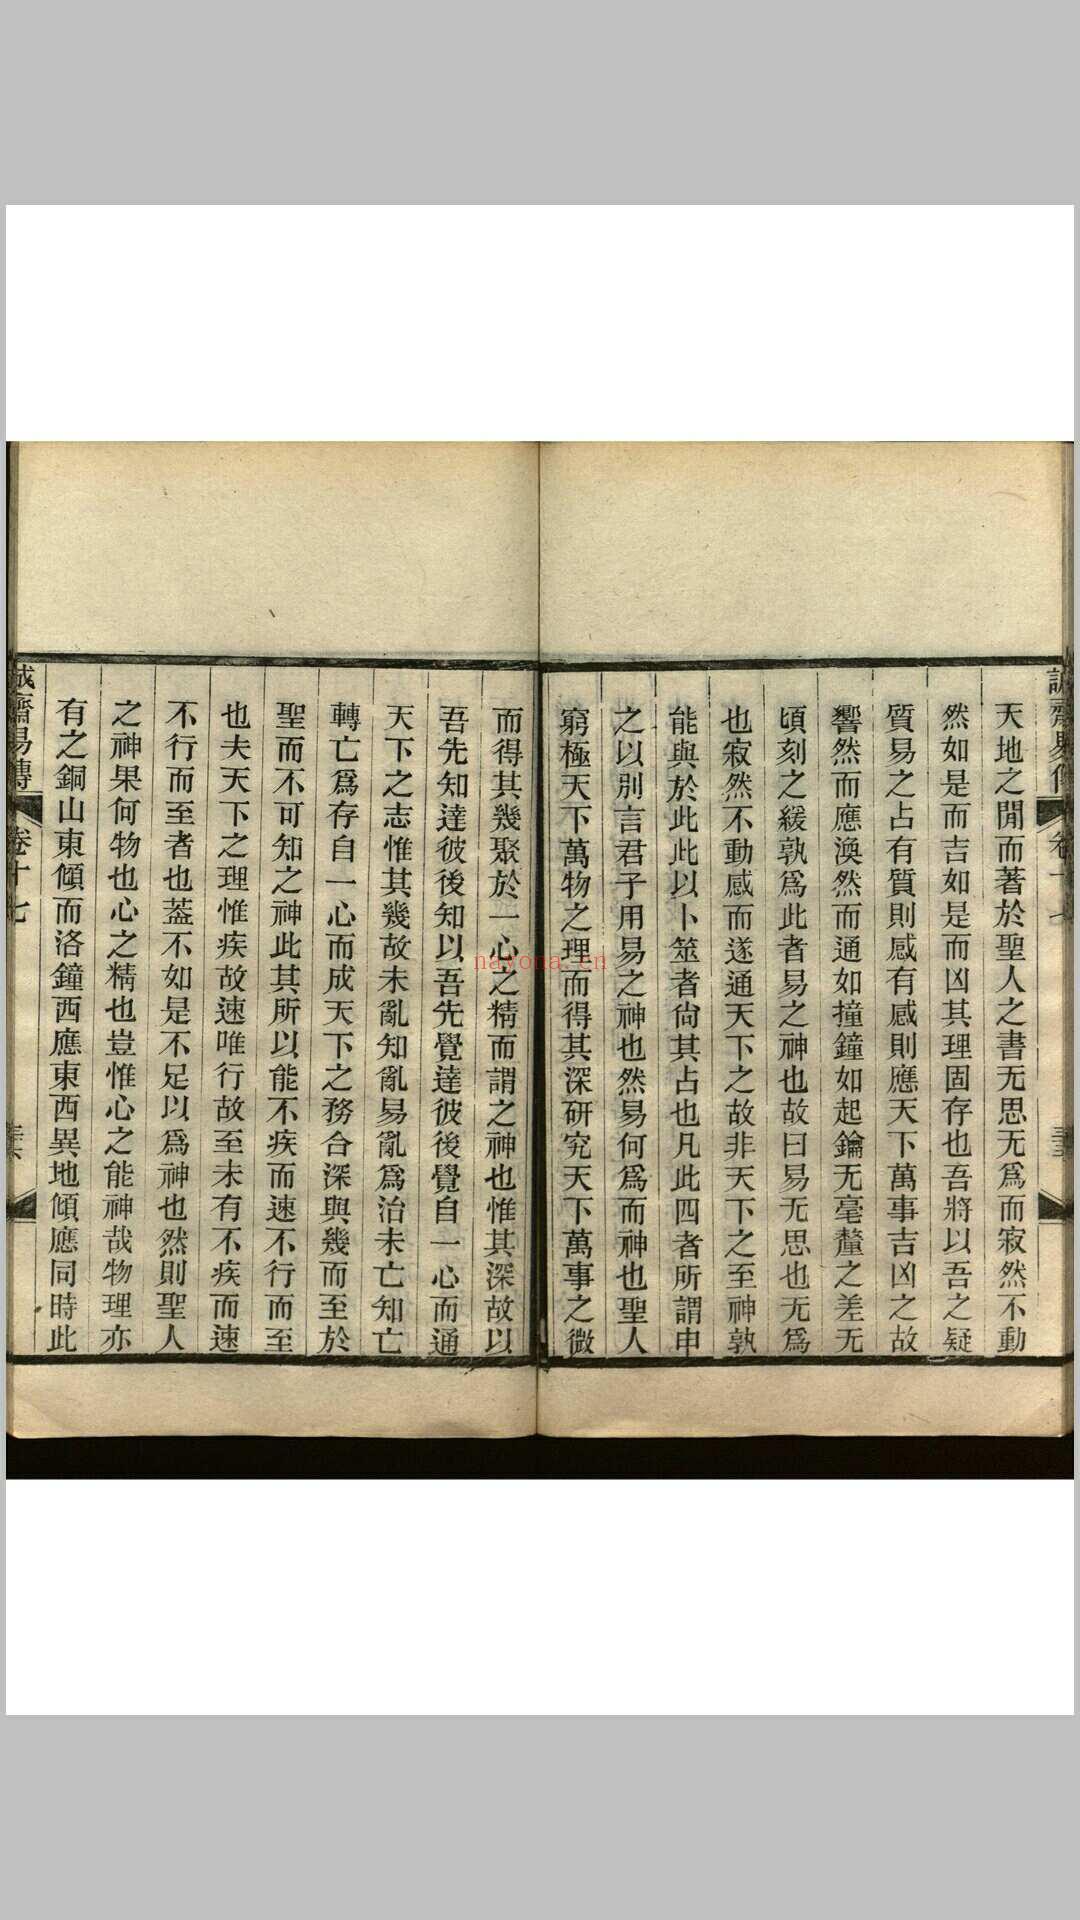 天地之閒而著於聖人之書无思无爲而寂然不動
然如是而吉如是而凶其理固存也吾將以吾之疑
質易之占有質則感有感則應天下萬事吉凶之故
響然而應渙然而通如撞鐘如起鑰无毫釐之差无
頃刻之緩孰爲此者易之神也故曰易无思也无爲
也寂然不動感而遂通天下之故非天下之至神孰
能與於此此以卜筮者尙其占也凡此四者所謂申
之以別言君子用易之神也然易何爲而神也聖人
窮極天下萬物之理而得其深硏究天下萬事之微
而得其幾聚於一心之精而謂之神也惟其深故以
吾先知達彼後知以吾先覺達彼後覺自一心而通
天下之志惟其幾故未亂知亂易亂爲治未亡知亡
轉亡爲存自一心而成天下之務合深與幾而至於
聖而不可知之神此其所以能不疾而速不行而至
也夫天下之理惟疾故速唯行故至未有不疾而速
不行而至者也蓋不如是不足以爲神也然則聖人
之神果何物也心之精也豈惟心之能神哉物理亦
有之銅山東傾而洛鐘西應東西異地傾應同時此
誠齋易傳 卷十七
nayona.cn